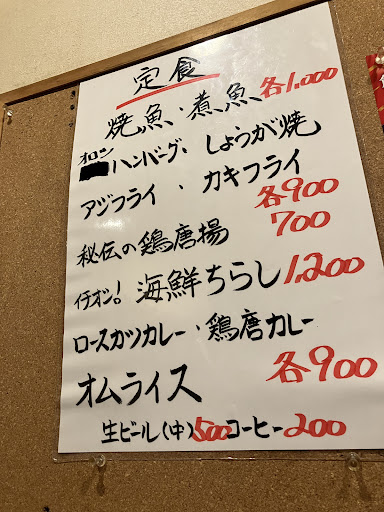 定食
焼魚・煮魚 各1,000
オロシ
ハンバーグ、しょうが焼
アジフライ、カキフライ
各900
秘伝の鶏唐揚 700
イチオシ! 海鮮ちらし 1,200
ロースカツカレー、鶏唐カレー
各900
オムライス
生ビール(中)500 コーヒー200